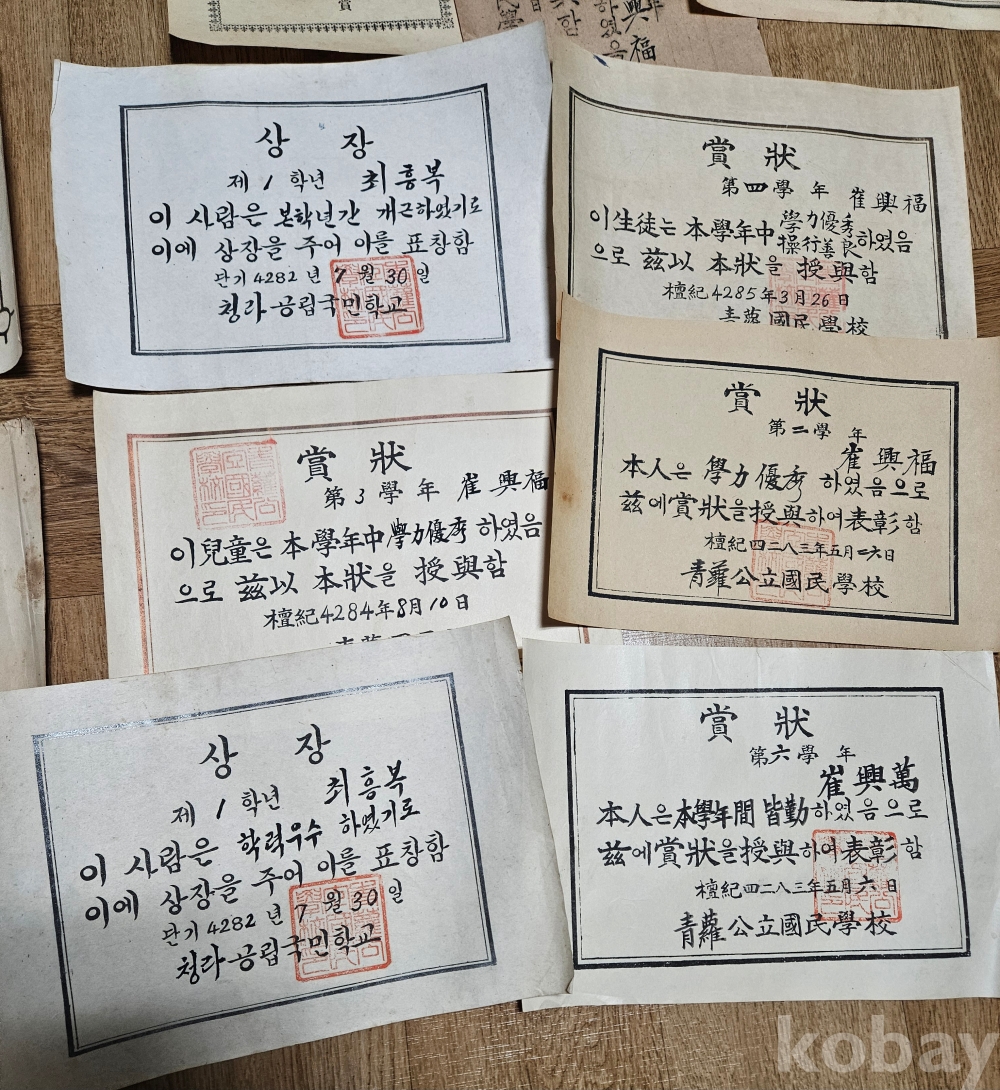 賞
興福
하였음
상 장
제 1 학년 최흥복
이 사람은 본학년간 개근하였기로
이에 상장을 주어 이를 표창함
단기 4282 년 7 월 30 일
청라공립국민학교
賞 狀
第四學年 崔興福
이生徒는 本學年中 學力優秀 操行善良 하였음
으로 玆以 本狀을 授與함
檀紀 4285年 3月 26日
青蘿國民學校
賞 狀
第3學年 崔興福
이兒童은 本學年中 學力優秀 하였음
으로 玆以 本狀을 授與함
檀紀 4284年 8月 10日
賞 狀
第二學年
崔興福
本人은 學力優秀 하였음으로
玆에賞狀을授與하여表彰함
檀紀四二八三年五月二六日
青蘿公立國民學校
상 장
제 1 학년 최흥복
이 사람은 학력우수 하였기로
이에 상장을 주어 이를 표창함
단기 4282 년 7 월 30 일
청라공립국민학교
賞 狀
第六學年
崔興萬
本人은本學年間 皆勤하였음으로
玆에賞狀을授與하여表彰함
檀紀四二八三年五月六日
青蘿公立國民學校
kobay